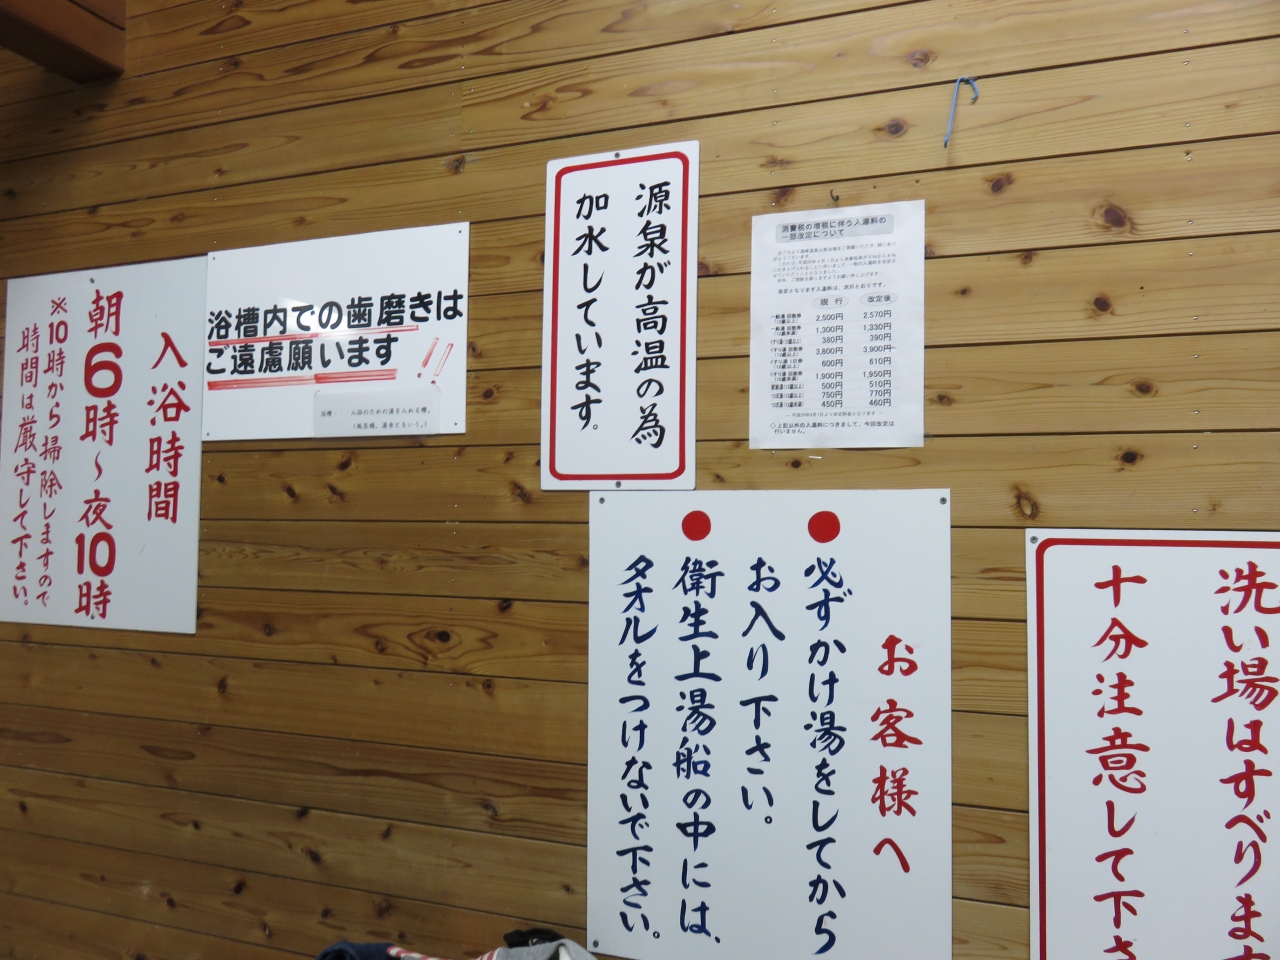 入浴時間
朝6時～夜10時
※10時から掃除しますので
時間は厳守して下さい。
浴槽内での歯磨きは
ご遠慮願います
浴槽・・・入浴のための湯を入れる槽。
(風呂桶、湯舟ともいう。)
源泉が高温の為
加水しています。
消費税の増税に伴う入湯料の
一部改定について
改定となります入湯料は、次のとおりです。
現行 改定後
2,500円 2,570円
1,300円 1,330円
380円 390円
3,800円 3,900円
600円 610円
1,900円 1,950円
500円 510円
750円 770円
450円 460円
◇上記以外の入湯料につきまして、今回改定は
行いません。
お客様へ
●必ずかけ湯をしてから
お入り下さい。
●衛生上湯船の中には、
タオルをつけないで下さい。
洗い場はすべります
十分注意して下さ